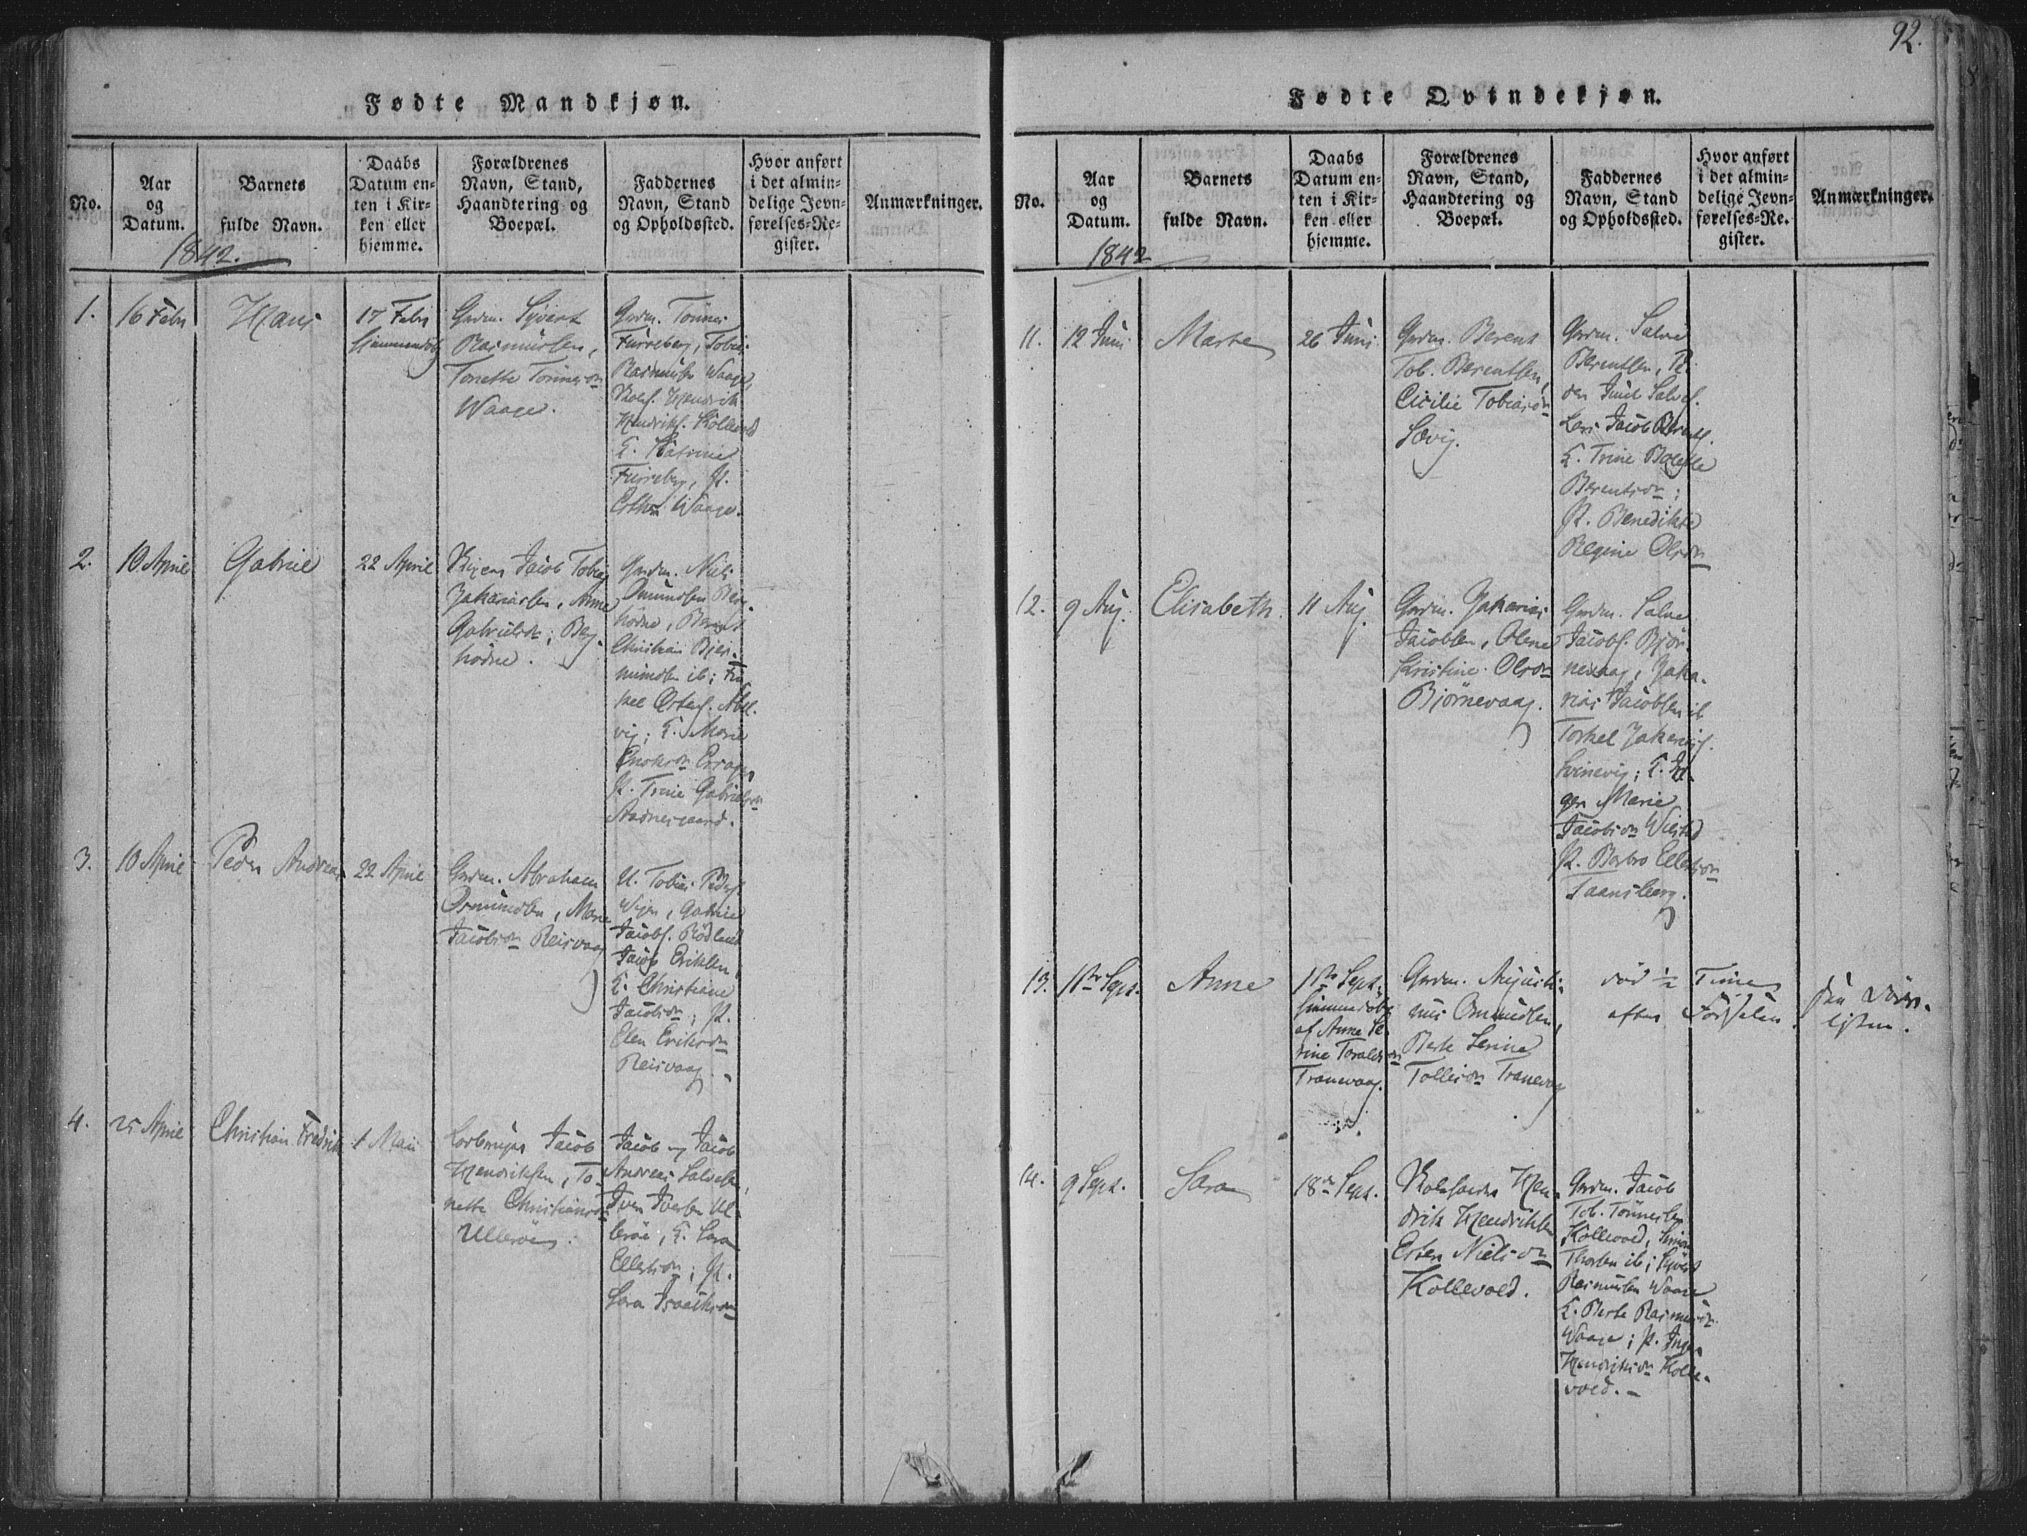 92.
Fødte Mandkjøn.
No.
Aar
og
Datum.
Barnets
fulde Navn.
Daabs
Datum en-
ten i Kir-
ken eller
hjemme.
Forældrenes
Navn, Stand,
Haandtering og
Boepæl.
Faddernes
Navn, Stand
og Opholdssted.
Hvor anført
i det almin-
delige Jevn-
førelses-Re-
gister.
Anmærkninger.
1842.
1.
16 Febr
Hans
17 Febr
Hjemmedøbt
Gaardm. Syvert
Rasmussen,
Tonette Tønnesdr
Waage.
Gaardm. Tønnes
Furreberg, Tobias
Rasmussen Waage,
Hendrik
Hendriks. Kollevold
K. Katrine
Furreberg, P.
Esther Waage.
2.
10 April
Gabriel
22 April
Jacob Tobias
Zakariassen, Anne
Gabrielsdr; Berg-
hodne.
Gaardm. Niels
Omundsen Berg-
hodne, Berent
Christian Bjer-
mundsen ib;
vig; K. Marie
Enoksdr
P. Trine Gabrielsdr
3.
10 April
Peder Andreas
22 April
Gaardm. Abraham
Osmundsen, Marie
Jacobsdr Reisvaag
U. Tobias Peders.
Gabriel
Jacobs. Rødland
Jacob Eriksen,
K. Christiane
Jacobsdr; P.
Elen Eriksdr
Reisvaag.
4.
25 April
Christian Fredrik
1 Mai
Jacob
Hendriksen, To-
nette Christiansdr
Ullerøe.
Jacob og Jacob
Andreas Salvesen,
Iver Iversen Ul-
lerøe, K. Sara
Ellertsdr; P.
Sara Isaaksdr
Fødte Qvindekjøn.
No.
Aar
og
Datum.
Barnets
fulde Navn.
Daabs
Datum en-
ten i Kir-
ken eller
hjemme.
Forældrenes
Navn, Stand,
Haandtering og
Boepæl.
Faddernes
Navn, Stand
og Opholdssted.
Hvor anført
i det almin-
delige Jevn-
førelses-Re-
gister.
Anmærkninger.
1842
11.
12 Juni
Marte
26 Juni
Gaardm. Berent
Tob. Berentsen,
Cicilie Tobiasdr
Sævig.
Gaardm. Salve
Berentsen,
Salves.
Jacob Berents.
K. Trine Bolette
Berentsdr;
P. Benedikte
Regine Olsdr
12.
9 Aug.
Elisabeth.
11 Aug.
Gaardm. Zakarias
Jacobsen, Olene
Kristine Olsdr
Bjørnevaag.
Gaardm. Salve
Jacobs. Bjør-
nevaag, Zaka-
rias Jacobsen ib
Torkel Zakarias.
Svinevig; K. In-
ger Marie
Jacobsdr
P. Barbro Ellertsdr
Taansberg.
13.
1ste Sept.
Anne
1ste Sept.
Hjemmedøbt
af Anne Se-
rine Toralds
Tranevaag.
Gaardm. Augusti-
nus Omundsen,
Berte Serine
Tollisdr Tranevaag
død ½ Time
efter Fødselen.
see Døds-
listen.
14.
9 Sept.
Sara
18de Sept.
Hen-
drik Hendriksen
Ester Nielsdr
Kollevold.
Gaardm. Jacob
Tob. Tønnesen
Kollevold, Simon
Thorsen ib; Syvert
Rasmussen Waage
K. Berte Rasmusdr
Waage; P. Inger
Hendriksdr Kolle-
vold.